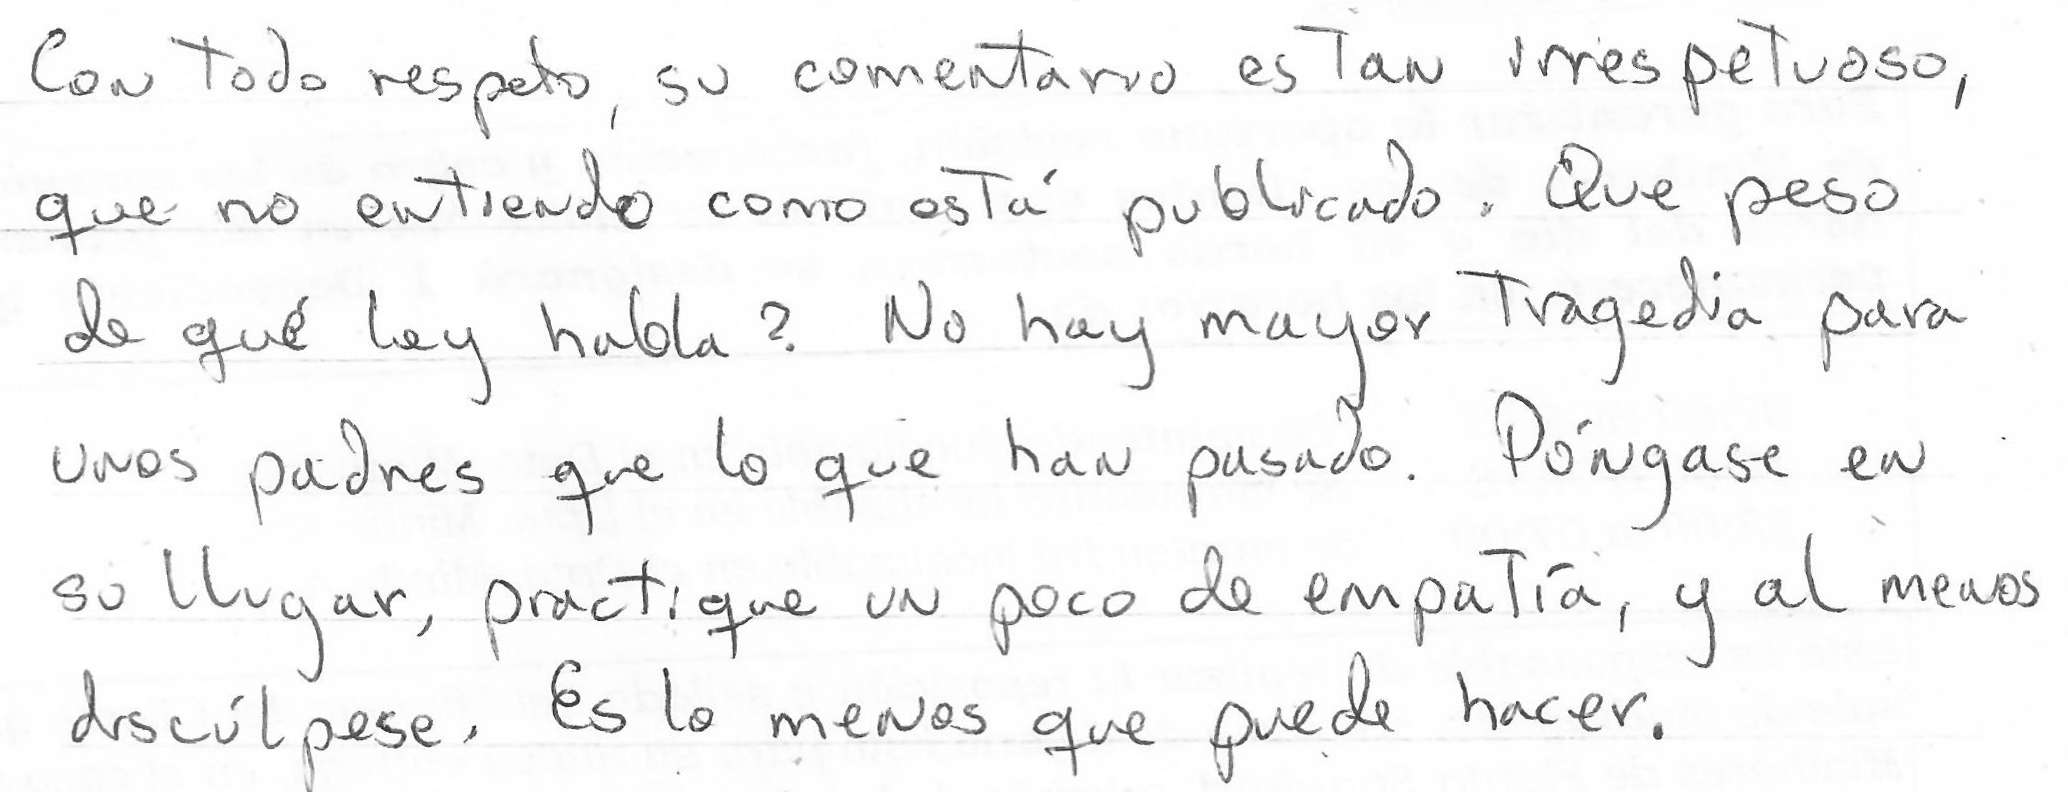 Con todo respeto, su comentario es tan irrespetuoso,
que no entiendo como está publicado. Que peso
de qué ley habla? No hay mayor tragedia para
unos padres que lo que han pasado. Póngase en
su llugar, practique un poco de empatía, y al menos
discúlpese. Es lo menos que puede hacer.